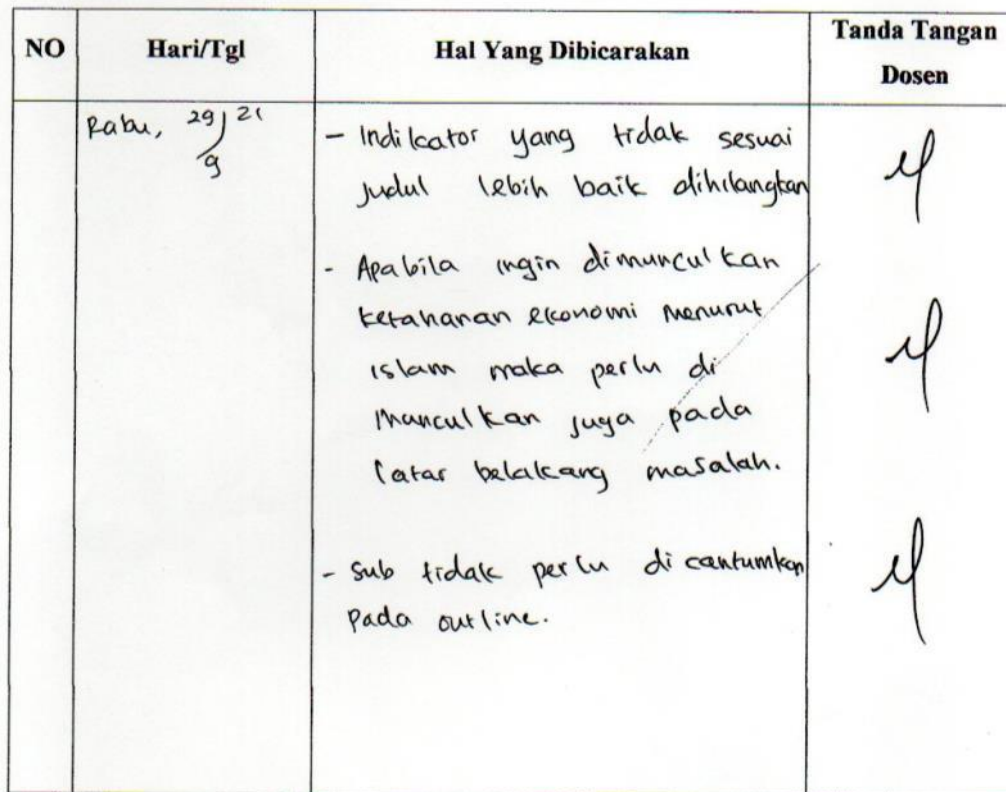 NO Hari/Tgl Hal Yang Dibicarakan Tanda Tangan
Dosen
Rabu, 29/9 21
- Indikator yang tidak sesuai
judul lebih baik dihilangkan
- Apabila ingin dimunculkan
ketahanan ekonomi menurut
islam maka perlu di
munculkan juga pada
latar belakang masalah.
- Sub tidak perlu di cantumkan
pada outline.